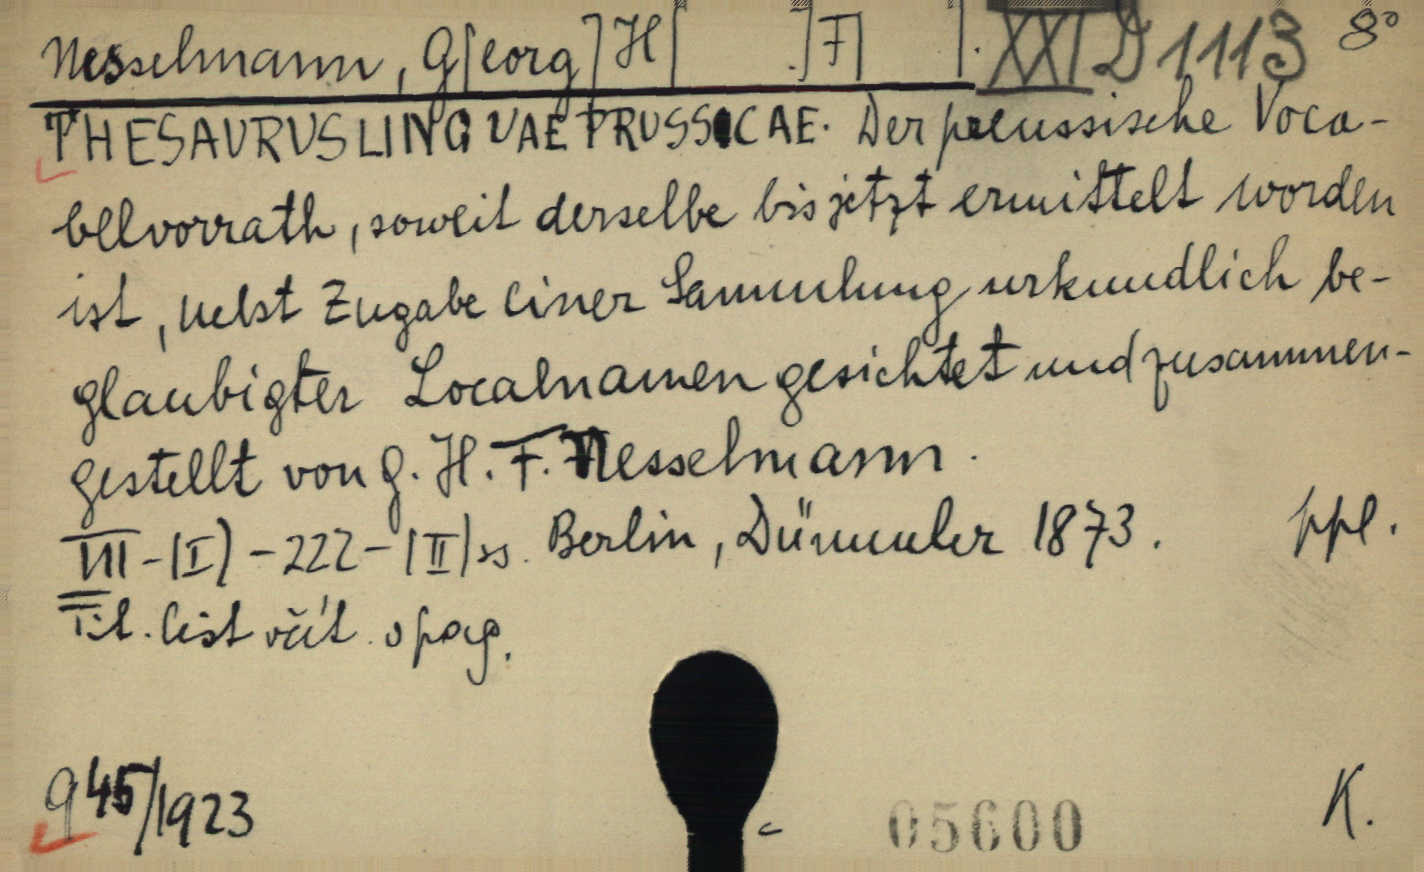 Nesselmann, G[eorg] H[ ] F[ ]. XXI D 1113 8°
THESAVRVS LINGVAE PRUSSICAE. Der preussische Voca-
belvorrath, soweit derselbe bis jetzt ermittelt worden
ist, nebst Zugabe einer Sammlung urkundlich be-
glaubigter Localnamen gesichtet und zusammen-
gestellt von G. H. F. Nesselmann.
VIII-(I)-222-(II) ss. Berlin, Dümmler 1873. ppl.
Tit. list včít. v pag.
q 45/1923
05600
K.